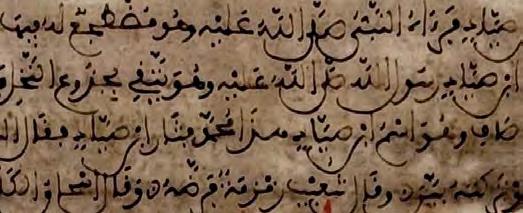 صياد فرءاه النبي صلى الله عليه وهو مضطجع له فيها
ابن صياد رسول الله صلى الله عليه وهو يتقي بجذوع النخل
صاف وهو اسم ابن صياد هذا محمد فثار ابن صياد فقال
تركته بين وقال شعيب زمزمة فرضه وقال اسحاق